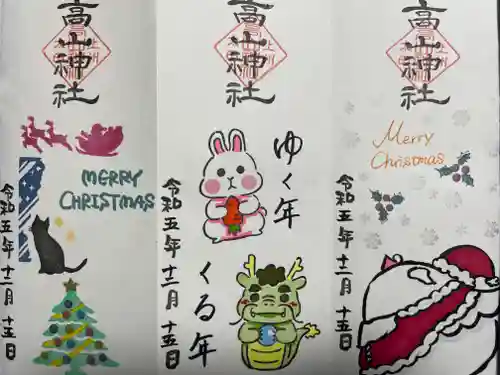 高山神社
MERRY
CHRISTMAS
令和五年十二月十五日
高山神社
ゆく年
くる年
令和五年十二月十五日
高山神社
Merry
Christmas
令和五年十二月十五日